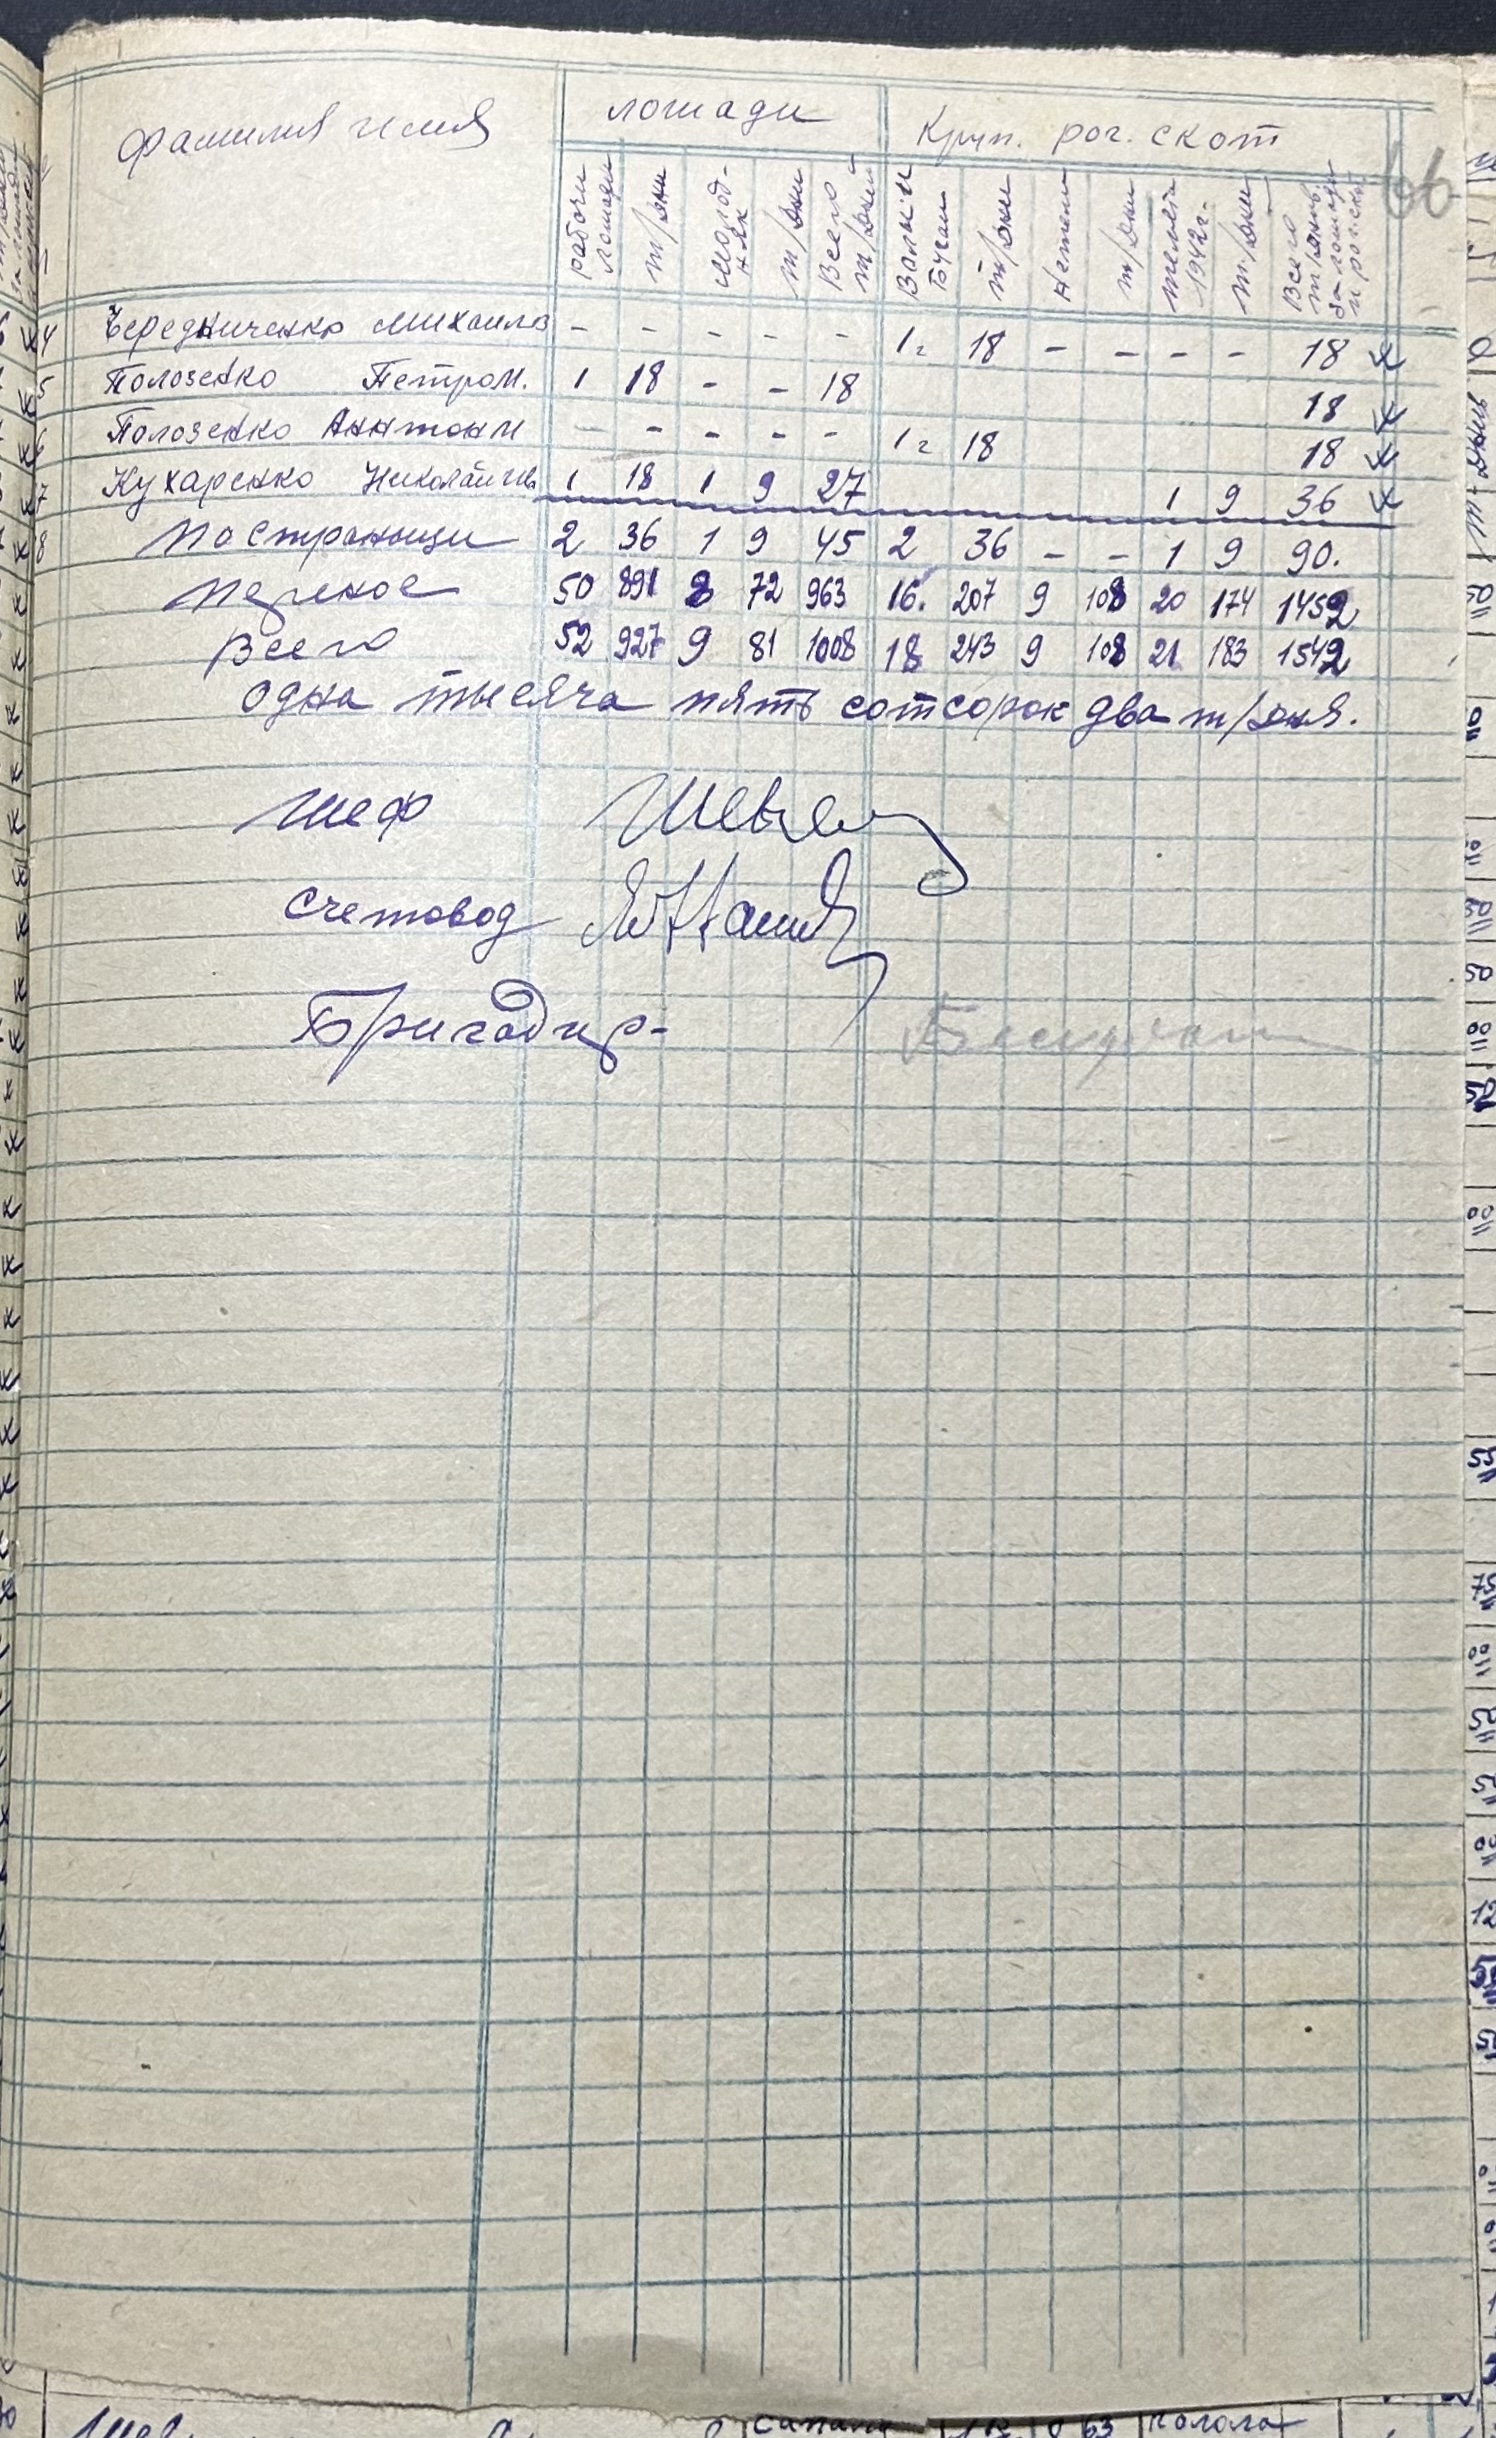 фамилия и имя лошади Круп. рог. скот
66
рабочи лошади т/дни молод-няк т/дни Всего т/дней Валы и Бугаи т/дни Нетели т/дни телята 1942г. т/дни Всего т/дней за лошади и рог. скот
4 Чередниченко Михаил - - - - - 1 г 18 - - - - 18
5 Полозенко Петро М. 1 18 - - 18 18
6 Полозенко Антон И - - - - - 1 г 18 18
7 Кухаренко Николай Ив. 1 18 1 9 27 1 9 36
8 по странице 2 36 1 9 45 2 36 - - 1 9 90.
перенос 50 891 8 72 963 16. 207 9 108 20 174 1452
Всего 52 927 9 81 1008 18 243 9 108 21 183 1542
одна тысяча пять сот сорок два т/дня.
Шеф
Счетовод
Бригадир-